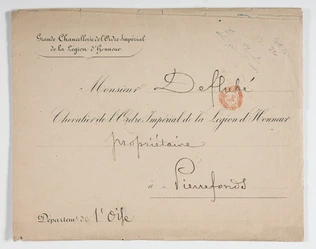 Grande Chancellerie de l'Ordre Impérial
de la Légion d'Honneur
Monsieur Deflubé
Chevalier de l'Ordre Impérial de la Légion d'Honneur
propriétaire
à Pierrefonds
Départemt de l'Oise